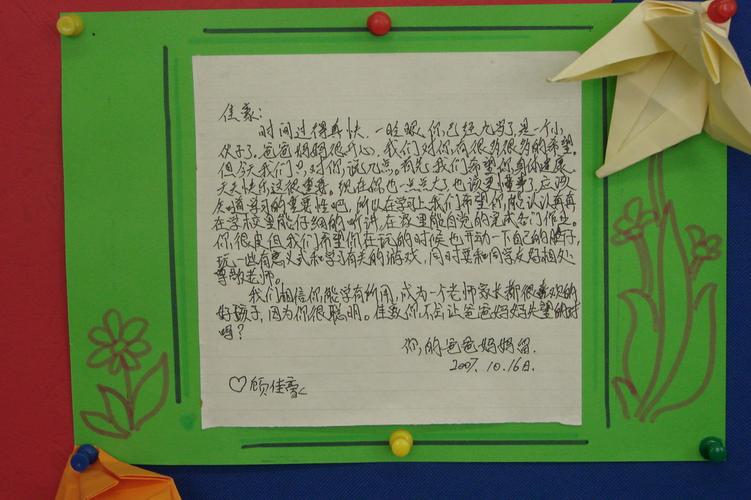 佳豪:
时间过得真快,一眨眼,你已经九岁了,是一个小
伙子了。爸爸妈妈很开心,我们对你有很多很多的希望。
但今天我们只对你说几点。首先我们希望你身体健康
天天快乐这很重要。现在你也一点点大了也该更懂事了,应该
知道学习的重要性吧,所以在学习上我们希望你能认认真真
在学校里能仔细的听讲,在家里能自觉的完成各门作业。
你很皮但我们希望你在玩的时候也开动一下自己的脑子,
玩一些有意义式和学习有关的游戏,同时要和同学友好相处、
尊敬老师。
我们相信你能学有所用,成为一个老师家长都很喜欢的
好孩子,因为你很聪明。佳豪你不会让爸爸妈妈失望的对
吗?
你的爸爸妈妈留.
2007.10.16日.
♡顾佳豪